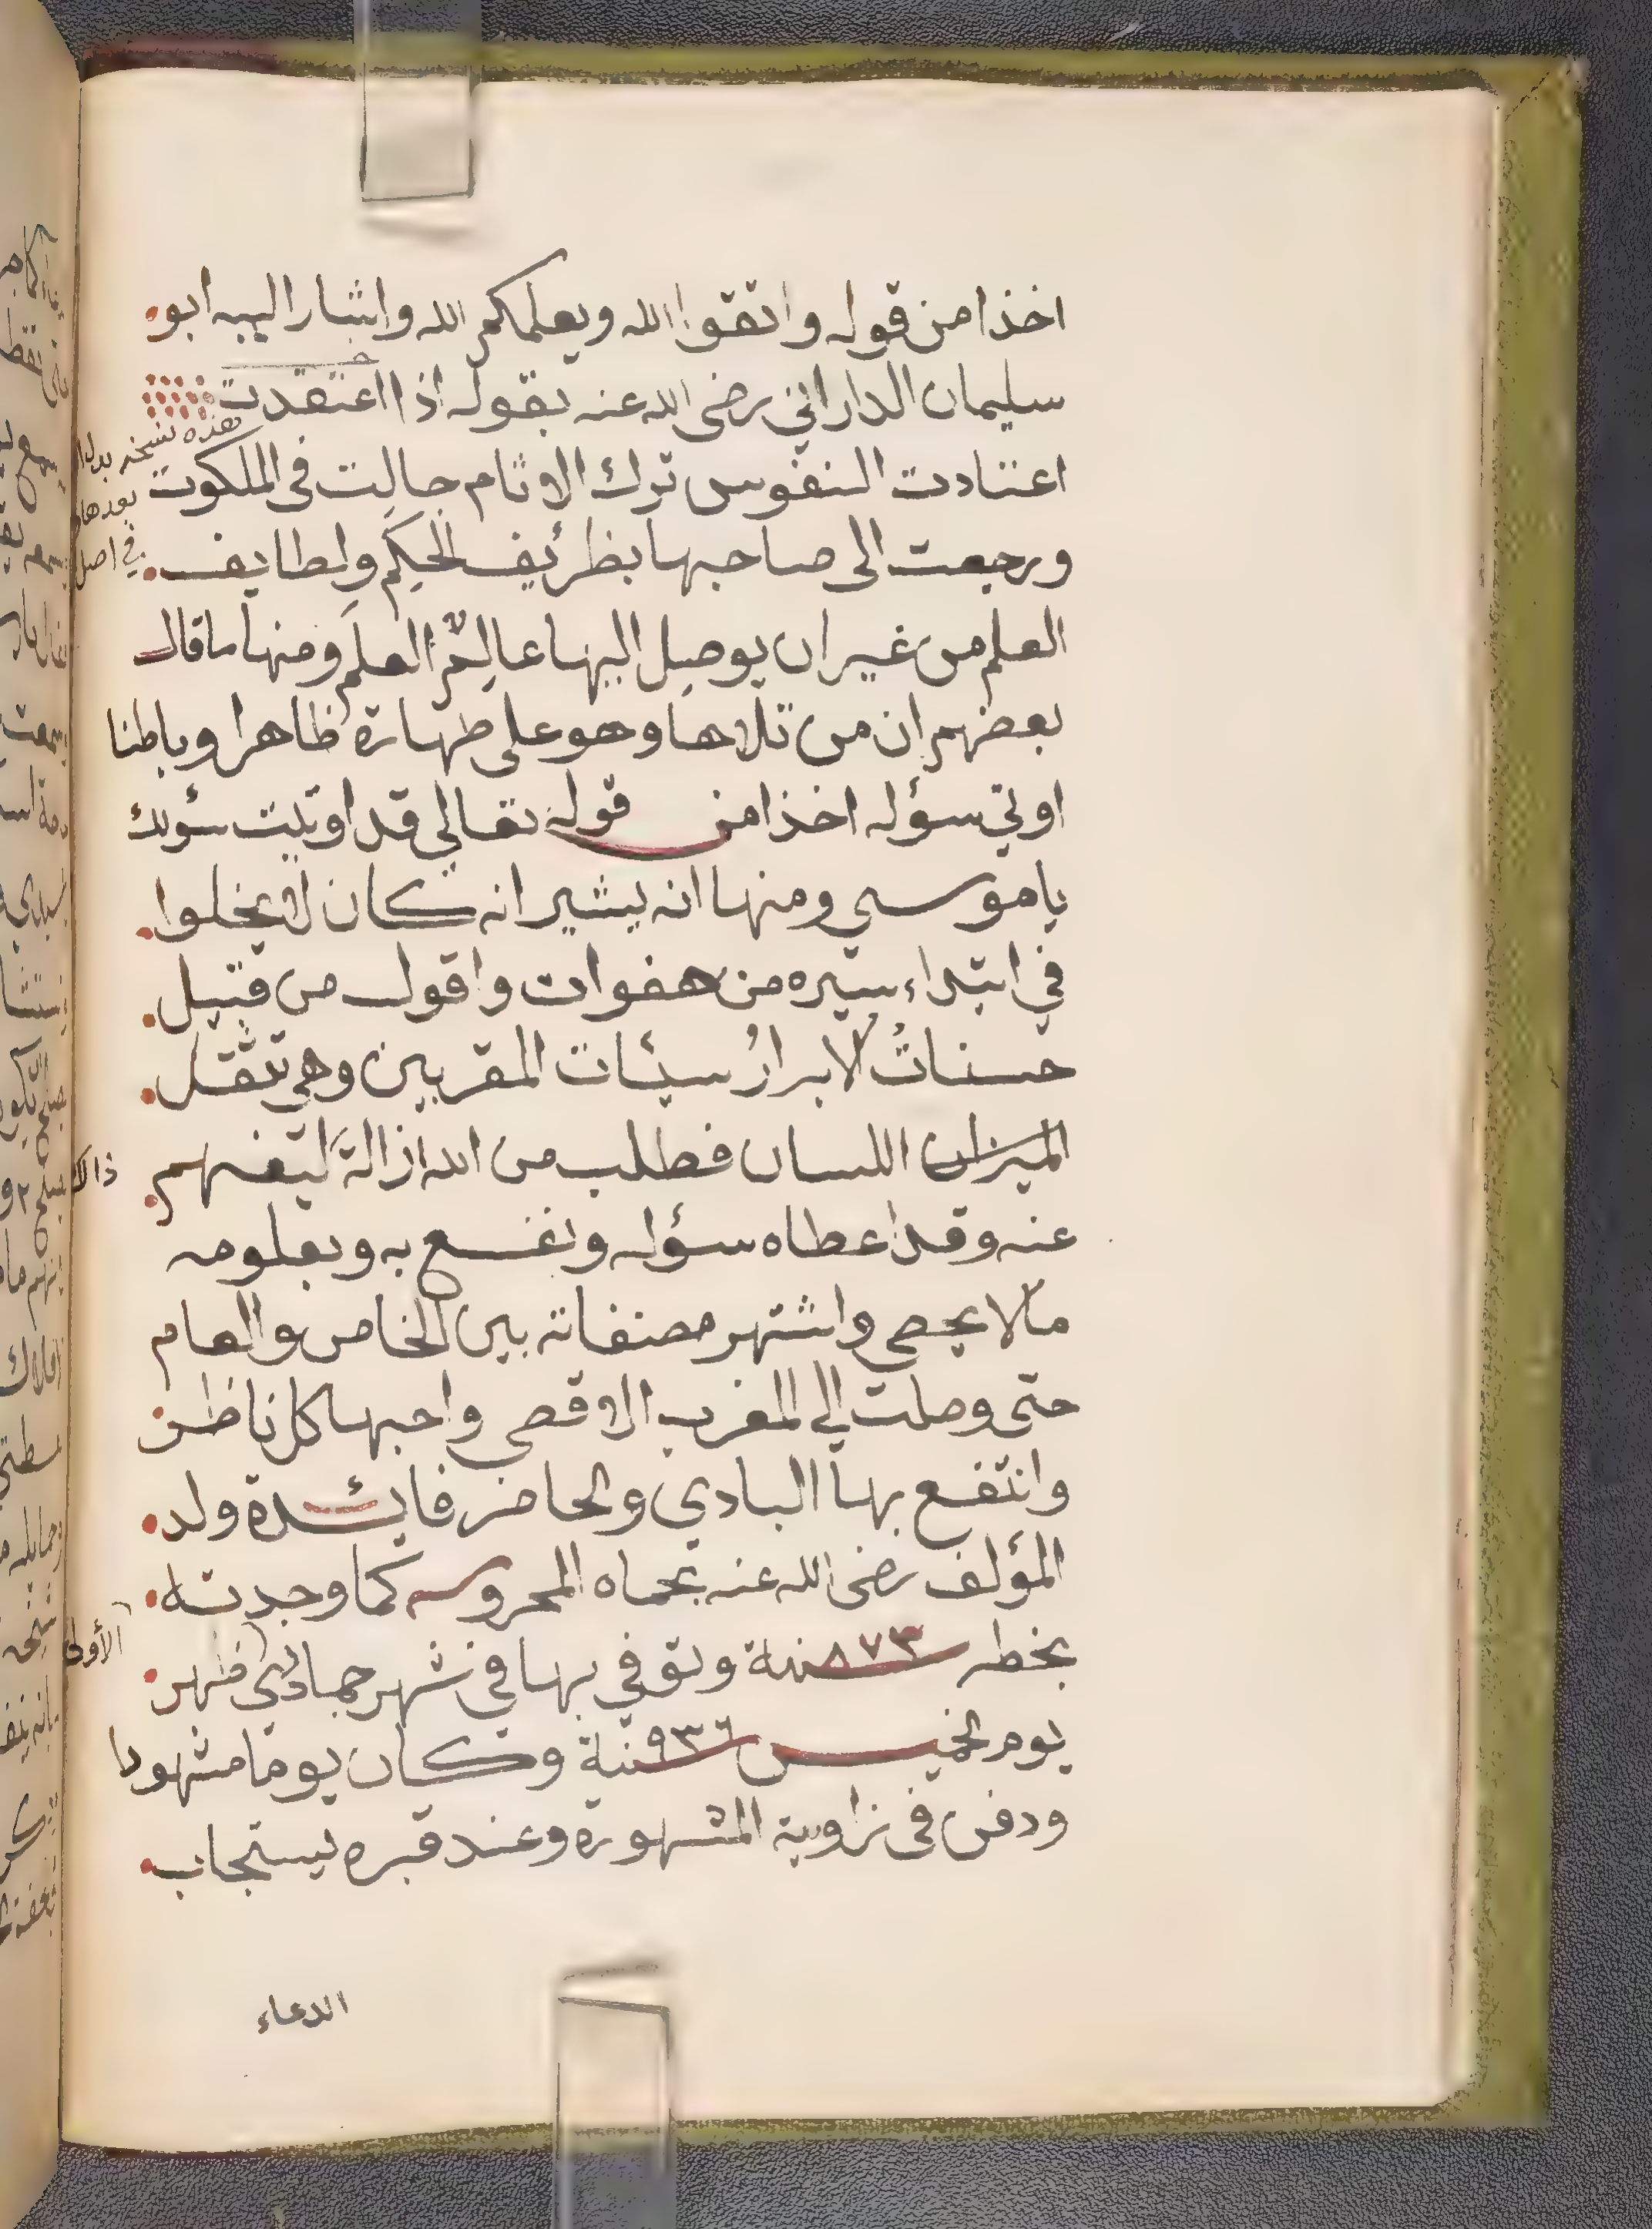 اخذا من قوله واتقوا الله ويعلمكم الله واشار اليه ابو
سليمان الداراني رضى الله عنه بقوله اذا اعتقدت
اعتادت النفوس ترك الاثام جالت فى الملكوت
ورجعت الى صاحبها بظرئف الحكم ولطايف
العلم من غير ان يوصل اليها عالم العلم ومنها ما قال
بعضهم ان من تلاها وهو على طهارة ظاهرا وباطنا
اوتي سؤله اخذا من قوله تعالي قد اوتيت سؤلك
يا موسى ومنها انه يشير انه كان لا يخلوا
في ابتداء سيره من هفوات واقول من قبيل
حسنات الابرار سيئات المقربين وهي تثقل
الميزان اللسان فطلب من الله ازالة ليفهم
ذالك
عنه وقد اعطاه سؤله ونفع به وبعلومه
مالا يحصى واشتهر مصنفاته بين الخاص والعام
حتى وصلت الي المغرب الاقصى واحبها كل ناظر
وانتفع بها البادي والحاضر فايئدة ولد
المؤلف رضى الله عنه بحماه المحروسه كما وجدته
بخطه ٨٧٣ سنة وتوفي بها في شهر جمادي ظهر
الأولى
يوم الخميس ٩٣٦ سنة وكان يوما مشهودا
ودفن فى زاويته المشهورة وعند قبره يستجاب
الدعاء
هذه نسخه بدل
بعدها
في اصل